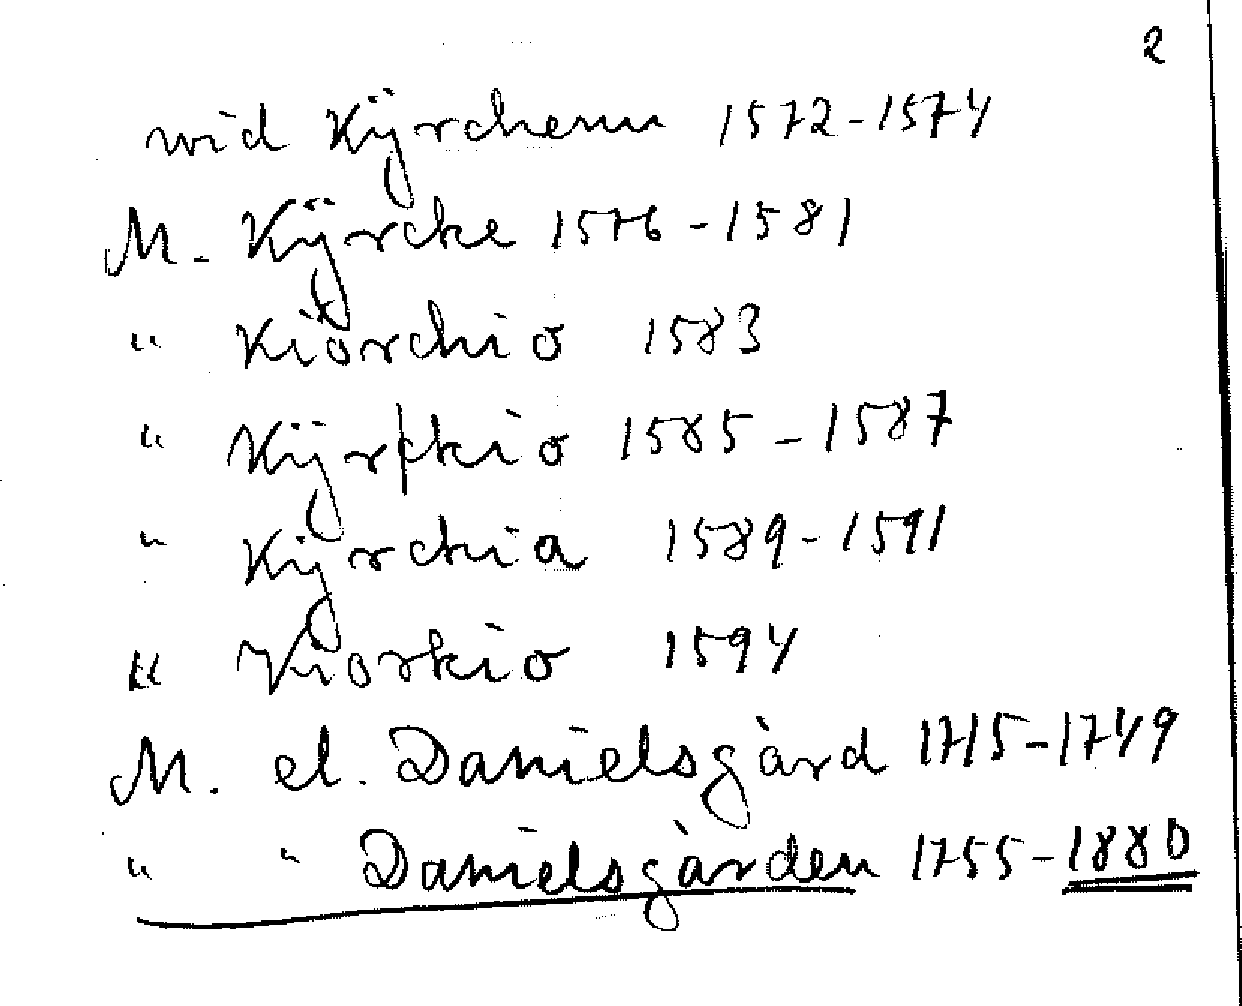 2
wid Kÿrchenn 1572-1574
M. Kÿrcke 1576-1581
" Kiörchio 1583
" Kÿrckio 1585-1587
" Kÿrckia 1589-1591
" Kiorkio 1594
M. el. Danielsgård 1715-1749
" " Danielsgården 1755-1880